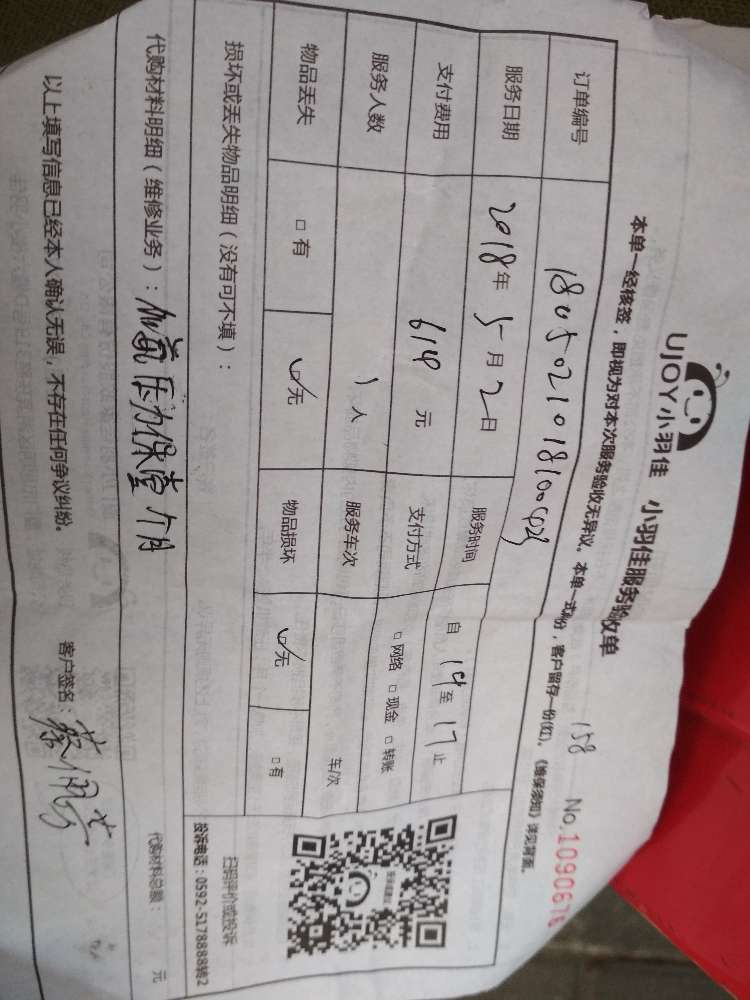 UJOY小羽佳 小羽佳服务验收单
158 No.1090676
本单一经核签，即视为对本次服务验收无异议。本单一式两份，客户留存一份(红)。《维保须知》详见背面。
订单编号
服务日期 2018年5月2日 服务时间 自14至17止
支付费用 614元 支付方式 □网络 □现金 □转账
服务人数 1人 服务车次 车/次
物品丢失 □有 ☑无 物品损坏 ☑无 □有
损坏或丢失物品明细（没有可不填）：
扫码评价或投诉
投诉电话：0592-5178888转2
代购材料明细（维修业务）：加氟压力保壹个月 代购材料总额： 元
以上填写信息已经本人确认无误，不存在任何争议纠纷。 客户签名：